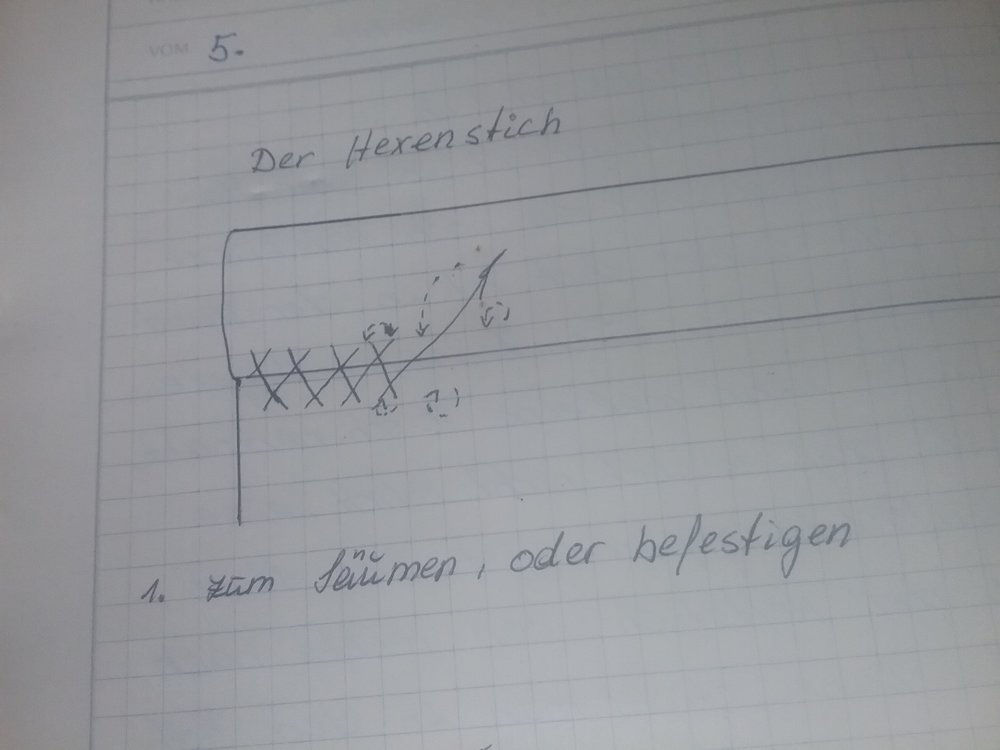 VOM 5.
Der Hexenstich
1. zum Säumen, oder befestigen